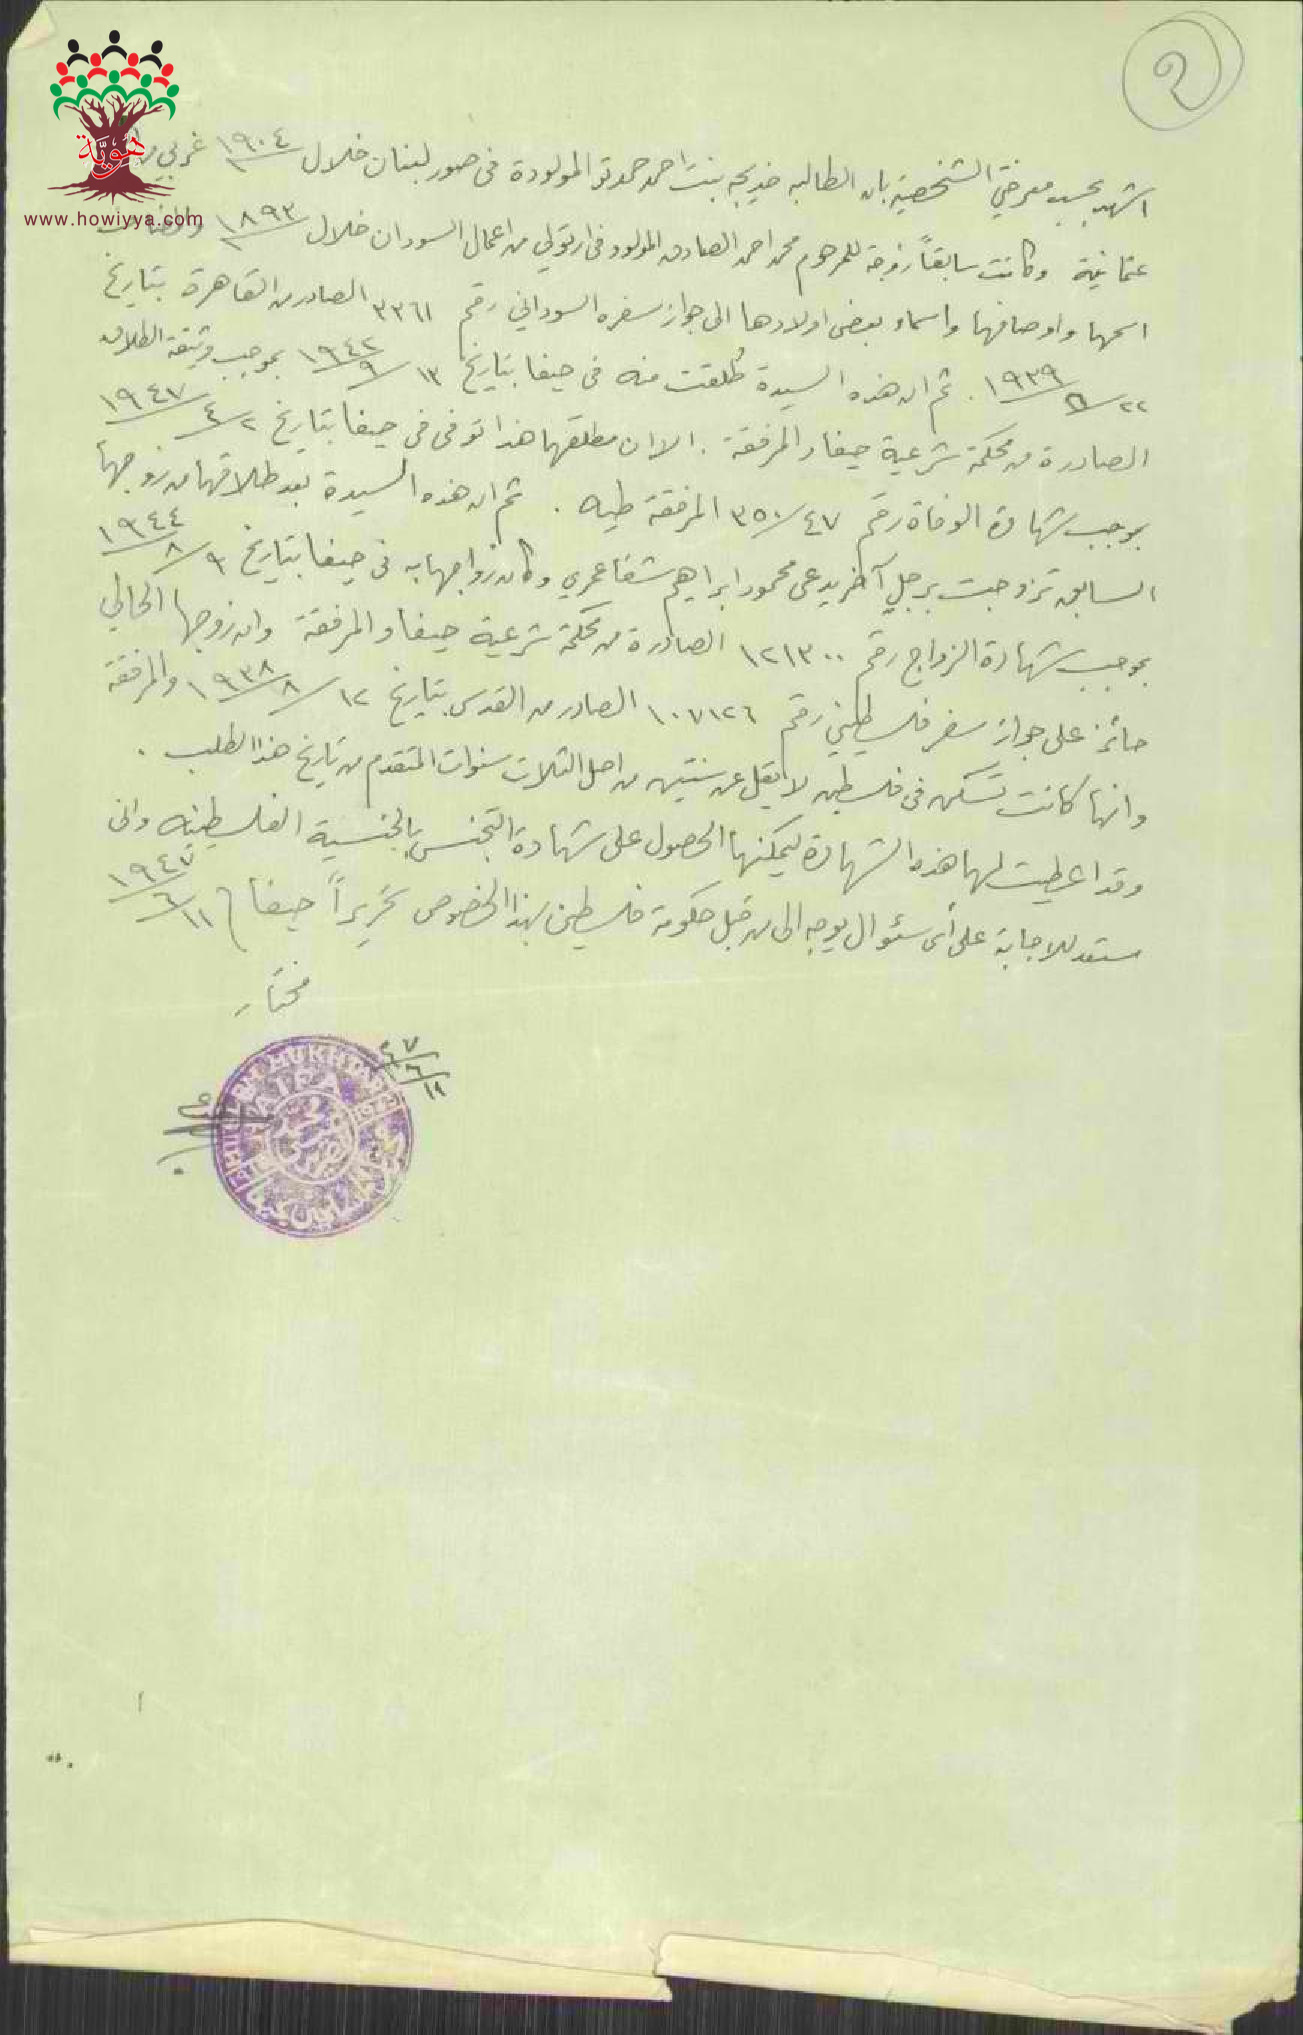 هوية
www.howiyya.com
2
اشهد بحسب معرفتي الشخصية بان الطالبه خديجه بنت احمد حمدتو المولودة فى صور لبنان خلال ١٩٠٤ غربي
عثمانية وكانت سابقاً زوجة للمرحوم محمد احمد الصادق المولود فى ارتولي من اعمال السودان خلال ١٨٩٣ والمضاف
اسمها واوصافها واسماء بعض اولادها الى جواز سفره السوداني رقم ٣٣٦١ الصادر من القاهرة بتاريخ
٢٢/ /١٩٣٩ . ثم ان هذه السيدة طُلقت منه فى حيفا بتاريخ ١٣/٩/١٩٤٢ بموجب وثيقة الطلاق
الصادرة من محكمة شرعية حيفا والمرفقة . الا ان مطلقها هذا توفى فى حيفا بتاريخ ٢/٤/١٩٤٧
بموجب شهادة الوفاة رقم ٣٥٠/٤٧ المرفقة طيه . ثم ان هذه السيدة بعد طلاقها من زوجها
السابق تزوجت برجل آخر يدعى محمود ابراهيم شفاعمري وكان زواجها به فى حيفا بتاريخ ٩/٨/١٩٤٤
بموجب شهادة الزواج رقم ١٢١٣٠٠ الصادرة من محكمة شرعية حيفا والمرفقة وان زوجها الحالي
حائز على جواز سفر فلسطيني رقم ١٠٧١٢٦ الصادر من القدس بتاريخ ١٢/٨/١٩٣٨ والمرفقة
وانها كانت تسكن فى فلسطين لا يقل عن سنتين من اصل الثلاث سنوات المتقدم من تاريخ هذا الطلب .
وقد اعطيت لها هذه الشهادة ليمكنها الحصول على شهادة التجنس بالجنسية الفلسطينيه وانى
مستعد للاجابة على أى سئوال يوجه الى من قبل حكومة فلسطين بهذا الخصوص تحريراً حيفا ١١/٦/١٩٤٧
مختار
١١/٦/٤٧
MUKHTAR
HAIFA